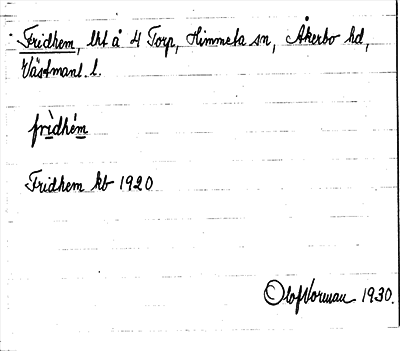 Fridhem, lht å 4 Torp, Himmeta sn, Åkerbo hd,
Västmanl. l.
frìdhém
Fridhem kb 1920
Olof Norman 1930.